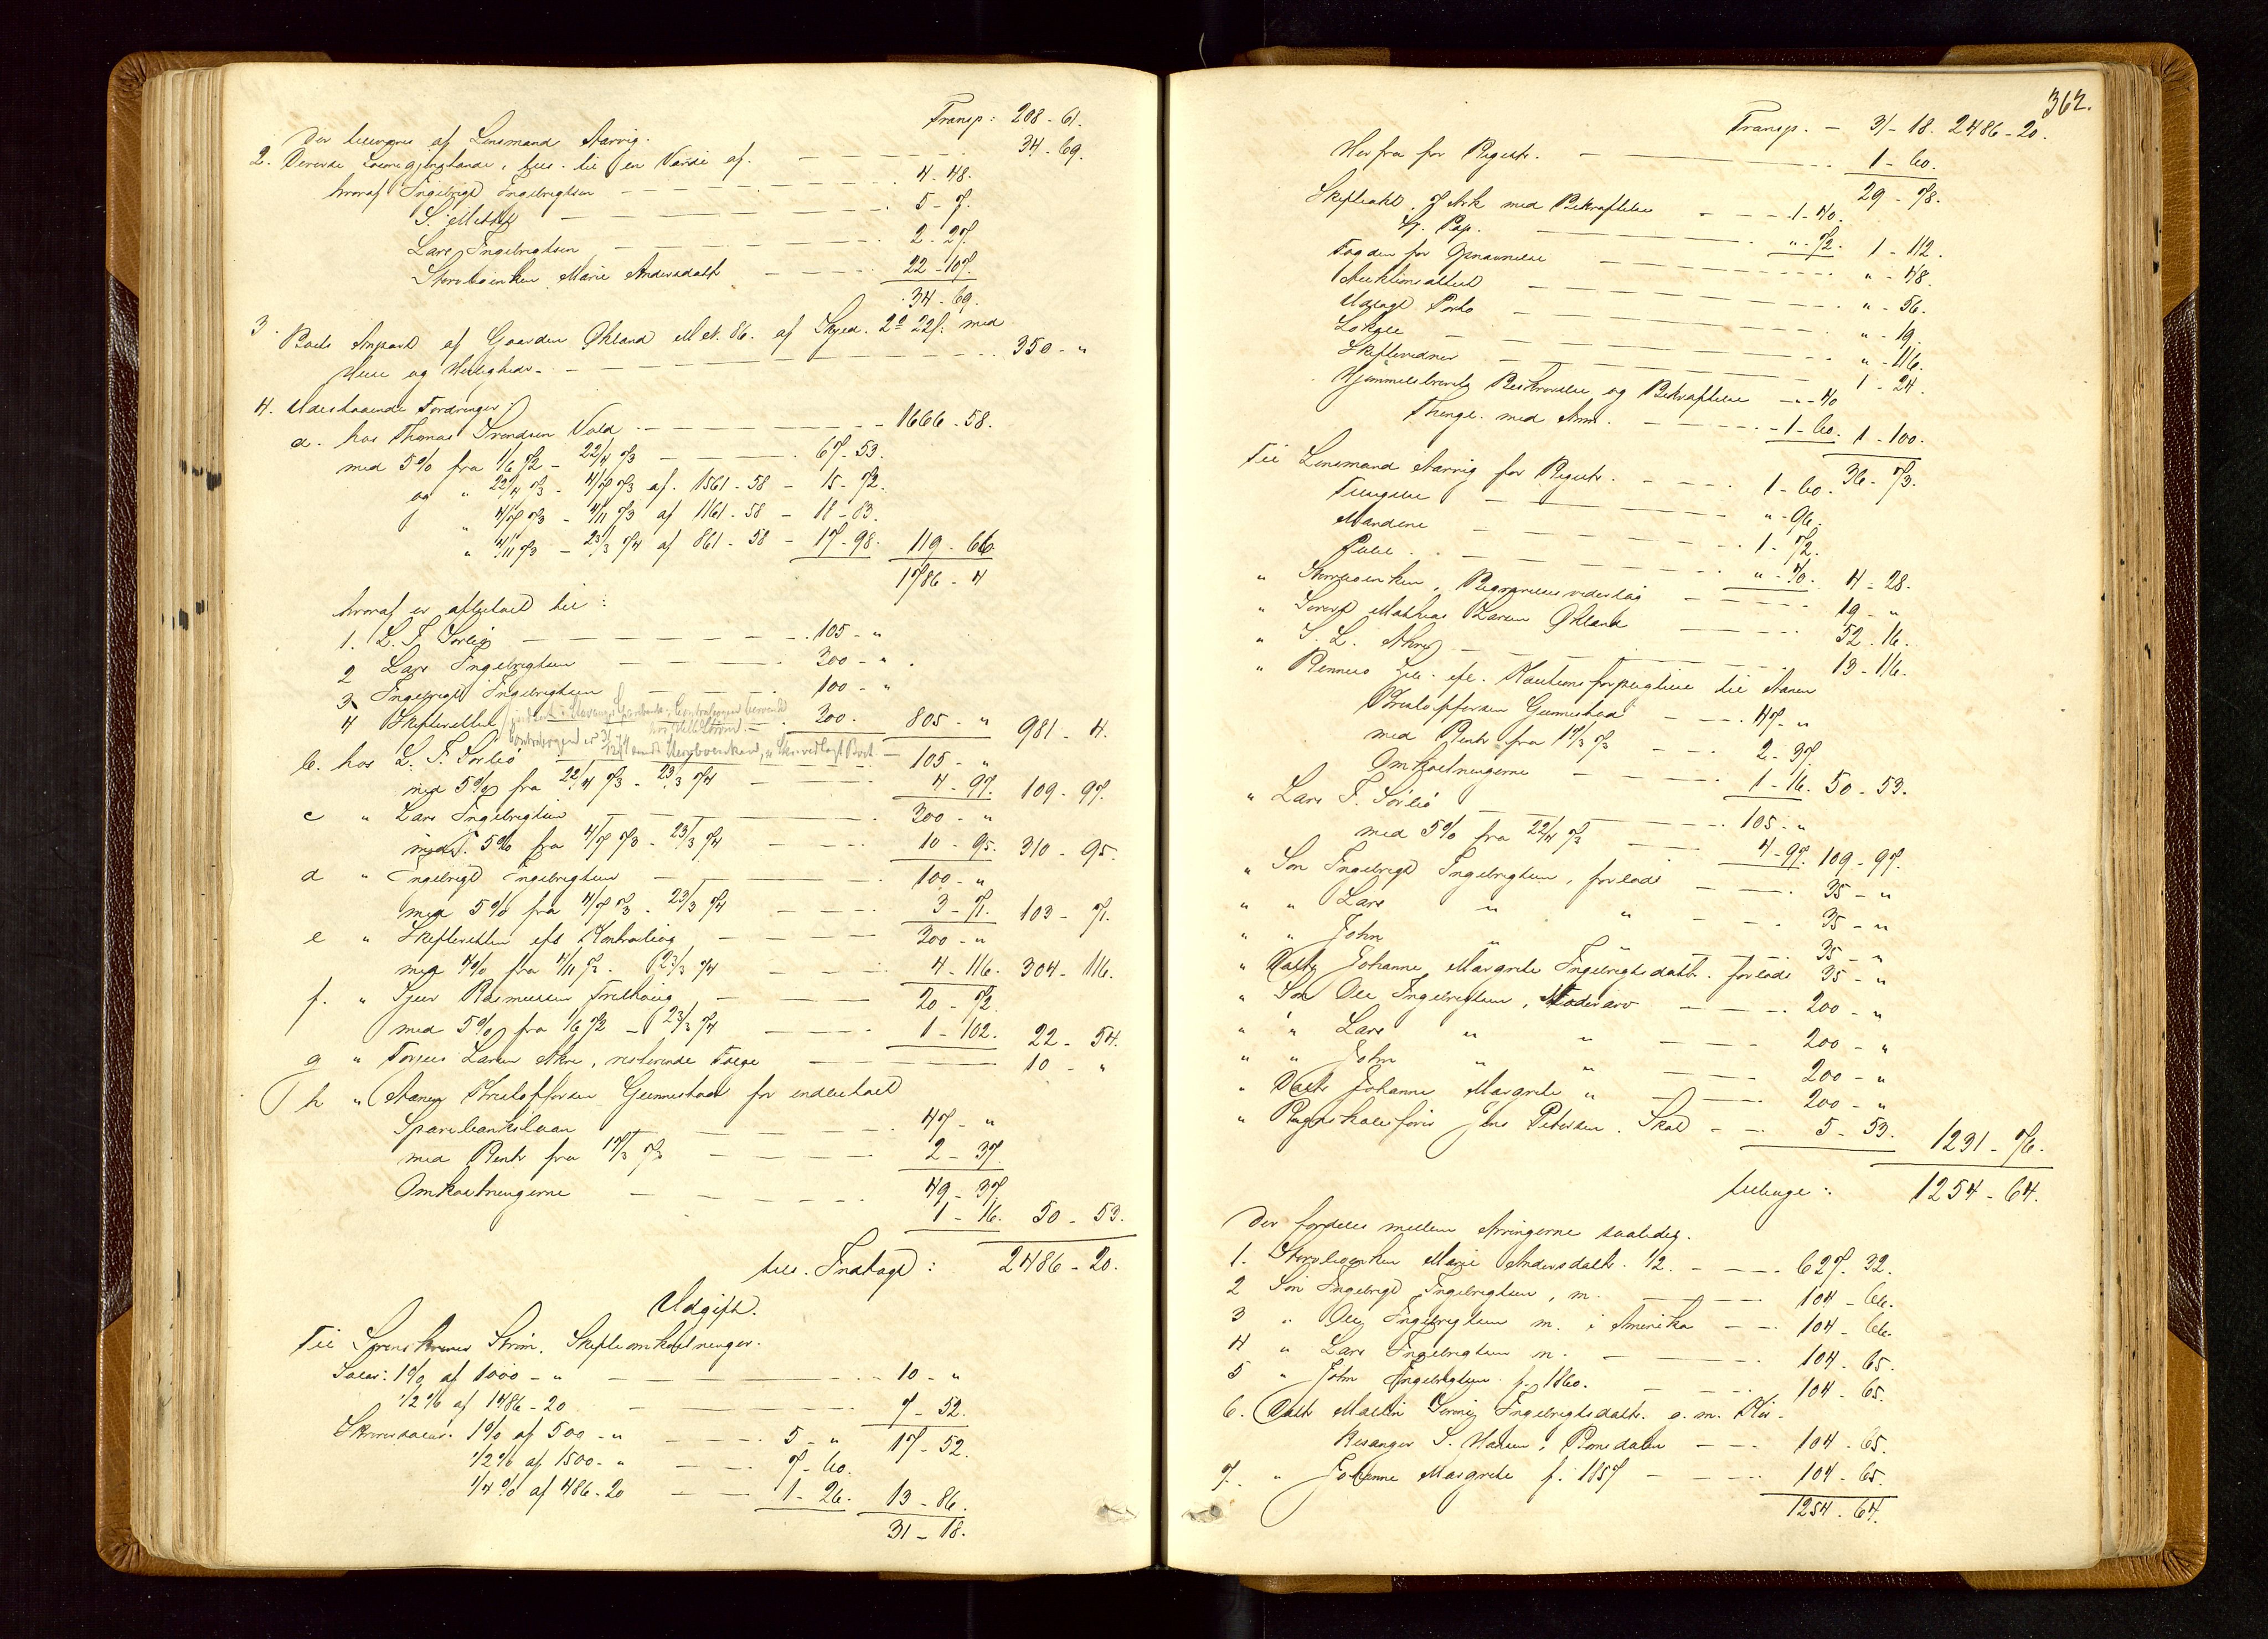 Transp: 208 - 61.
Der besørges af Lensmand Aarrig.
2. Diverse Løsøregjenstande, tils. til en Værdi af. 34 - 69.
hvoraf Ingebrigt Ingebrigtsen 4 - 48.
5 - 7.
Lars Ingebrigtsen 2 - 27.
Stervboenken Marie Andersdatt 22 - 107.
34 - 69.
3. Boets Anpart af Gaarden Økland M. N. 86. af Skyld. 2 22 s. med
Huse og Herligheder 350 - "
4. Udestaaende Fordringer:
a. hos Thomas Svendsen Vold 1666 - 58.
med 5% fra 1/6 72 - 22/4 73 67 - 53.
og " 22/4 73 - 4/7 73 af 1561 - 58 - 15 - 72.
" 4/7 73 - 4/11 73 af 1161 - 58 - 18 - 83.
" 4/11 73 - 23/3 74 af 861 - 58 - 17 - 98. 119 - 66.
1786 - 4
hvoraf er afbetalt til:
1. L. T. Sørlie 105 - "
2 Lars Ingebrigtsen 300 - "
3 Ingebrigt Ingebrigtsen 100 - "
4 Skifteretten 300. 805 - " 981 - 4.
b. hos L. T. Sørlie 105 - "
med 5% fra 22/4 73 - 23/3 74 4 - 97. 109 - 97.
c " Lars Ingebrigtsen 300 - "
med 5% fra 4/7 73 - 23/3 74 10 - 95. 310 - 95.
d " Ingebrigt Ingebrigtsen 100 - "
med 5% fra 4/7 73 - 23/3 74 3 - 71. 103 - 71.
e " Skifteretten eft. Kontrabog 300 - "
med 4% fra 4/11 73 - 23/3 74 4 - 116. 304 - 116.
f. " Sjur Rasmussen 20 - 72.
med 5% fra 1/6 72 - 23/3 74 1 - 102. 22 - 54.
g " Torjus Larsen Akre, resterende Følge 10 - "
h " Aanen Kristoffersen Gunnestad for indbetalt
Sparebankslaan 47 - "
med Rente fra 17/3 73 2 - 37.
49 - 37.
Omkostningerne 1 - 16. 50 - 53.
tils. Indtægt: 2486 - 20.
Udgift.
Til Sorenskriver Strøm. Skifteomkostninger.
Salær: 1% af 1000 - " 10 - "
1/2% af 1486 - 20 7 - 52.
17 - 52.
Skriversalær. 1% af 500 - " 5 - "
1/2% af 1500 - " 7 - 60.
1/4% af 486 - 20 1 - 26. 13 - 86.
31 - 18.
362.
Transp. - 31 - 18. 2486 - 20.
Herfra for Registr. 1 - 60.
29 - 78.
Skifteakt. 7 Ark med Bekræftelse 1 - 40.
St. Pap. " - 72. 1 - 112.
Fogden for Opnævnelse " - 48.
Auktionsattest " - 56.
Udlagt Porto " - 19.
Lokale " - 116.
Skiftevidner 1 - 24.
Hjemmelsbrevets Beskrivelse og Bekræftelse " - 40
Thingl. med Anm. 1 - 60. 1 - 100.
36 - 73.
Til Lensmand Aarrig for Registr. 1 - 60.
Tilsigelse " - 96.
Mændene 1 - 72.
" - 40. 4 - 28.
" Stervboenken, Begravelsesvederlag 19 - "
" Sivert Mathias Larsen Økland 52 - 16.
" S. L. Akre 13 - 116.
" Rennesø eft. Kautionsforpligtelse til Aanen
Kristoffersen Gunnestad 47 - "
med Rente fra 17/3 73 2 - 37.
Omkostningerne 1 - 16. 50 - 53.
" Lars T. Sørlie 105 - "
med 5% fra 22/4 73 4 - 97. 109 - 97.
" Søn Ingebrigt Ingebrigtsen, forlods 35 - "
" " Lars " " 35 - "
" " John " " 35 - "
" Datt Johanne Margrete Ingebrigtsdatt. forlods 35 - "
" Søn Ole Ingebrigtsen, Moderarv 200 - "
" " Lars " " 200 - "
" " John " " 200 - "
" Datt Johanne Margrete " 200 - "
" Regnskabsfører Jens Petersen. Skat 5 - 53. 1231 - 76.
tilbage: 1254 - 64.
Der fordeles mellem Arvingerne saaledes.
1. Stervboenken Marie Andersdatt. 1/2. 627. 32.
2 Søn Ingebrigt Ingebrigtsen, m. 104 - 66.
3 " Ole Ingebrigtsen m. i Amerika 104 - 66.
4 " Lars Ingebrigtsen m. 104 - 65.
5 " John Ingebrigtsen f. 1860. 104 - 65.
6. Datt Ingebrigtsdatt. g. m.
S. Hansen, Romsdalen 104 - 65.
7. " Johanne Margrete f. 1857 104 - 65.
1254 - 64.